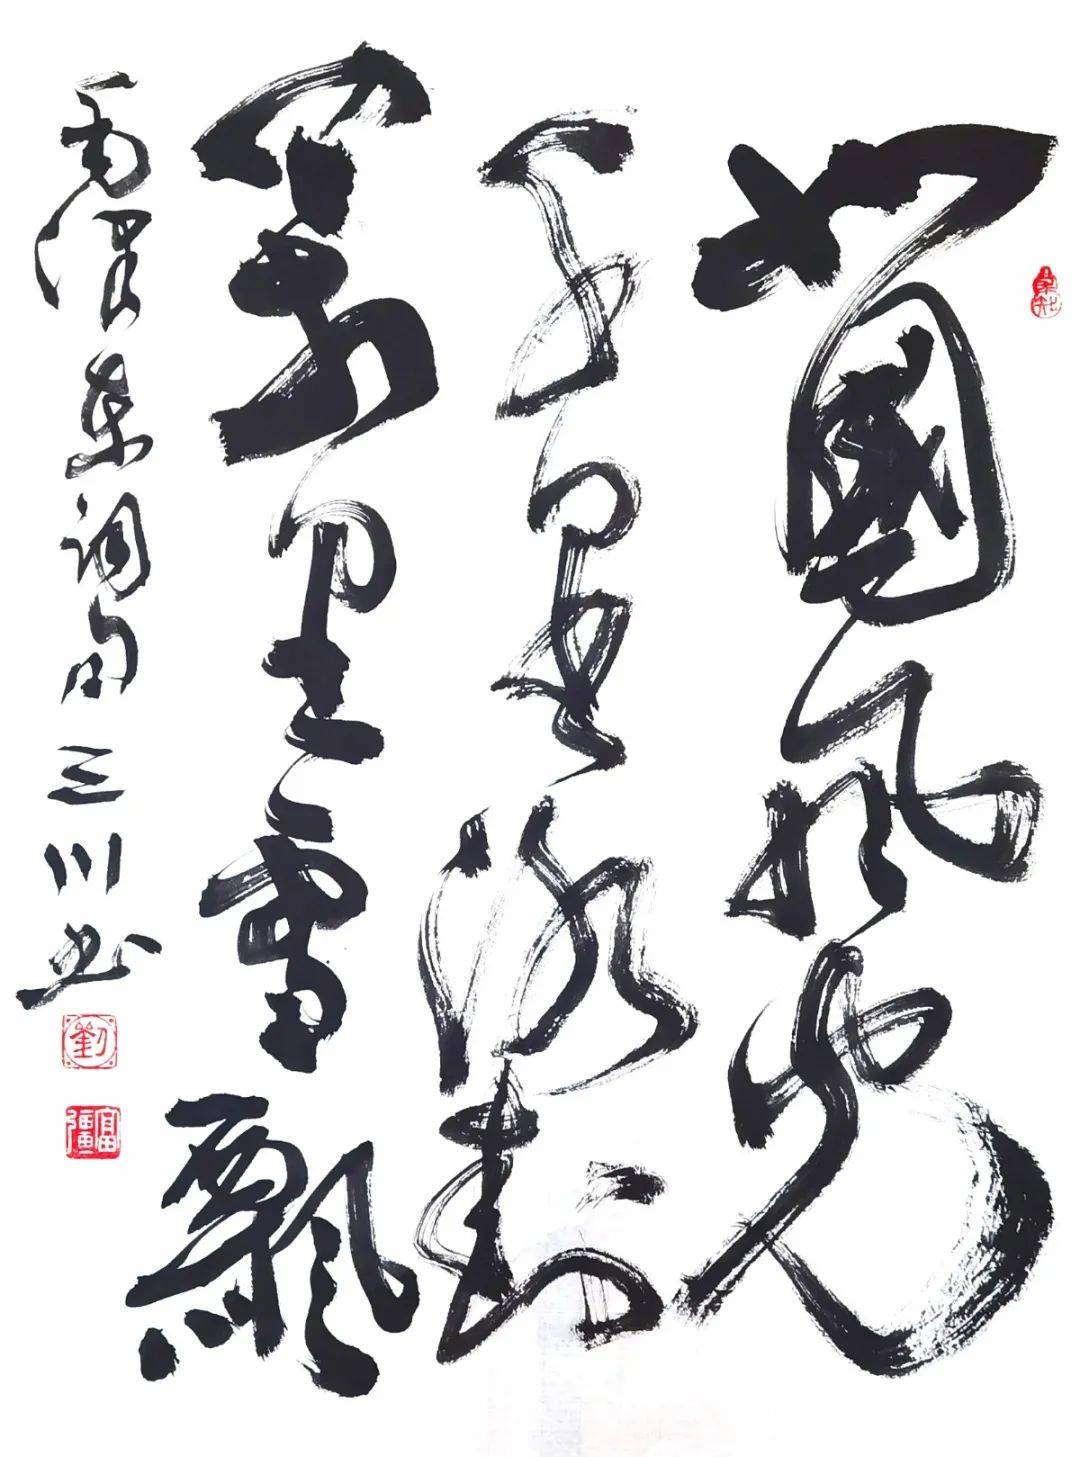 北國風光
千里冰封
萬里雪飄
毛澤東詞句 三川書
劉